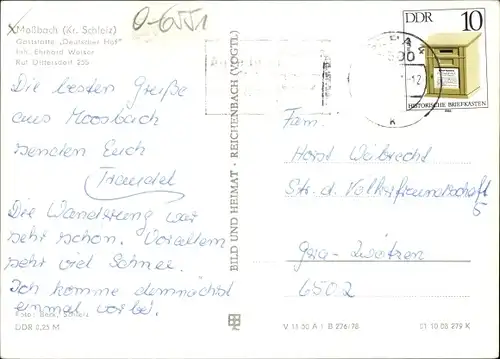 Moßbach (Kr. Schleiz)
Gaststätte „Deutscher Hof"
Inh. Ehrhard Weiser
Ruf Dittersdorf 255
0-6551
DDR 10
HISTORISCHE BRIEFKASTEN
Die besten Grüße
aus Moosbach
senden Euch
Traudel
Die Wanderung war
sehr schön. Vor allem
sehr viel Schnee.
Ich komme demnächst
einmal vorbei.
Foto: Beck, Schleiz
DDR 0,25 M
BILD UND HEIMAT · REICHENBACH (VOGTL)
Fam.
Horst Weibrecht
Str. d. Volksfreundschaft
Gera-Zwötzen
6502
V 11 50 A 1 B 276/78
01 10 08 279 K